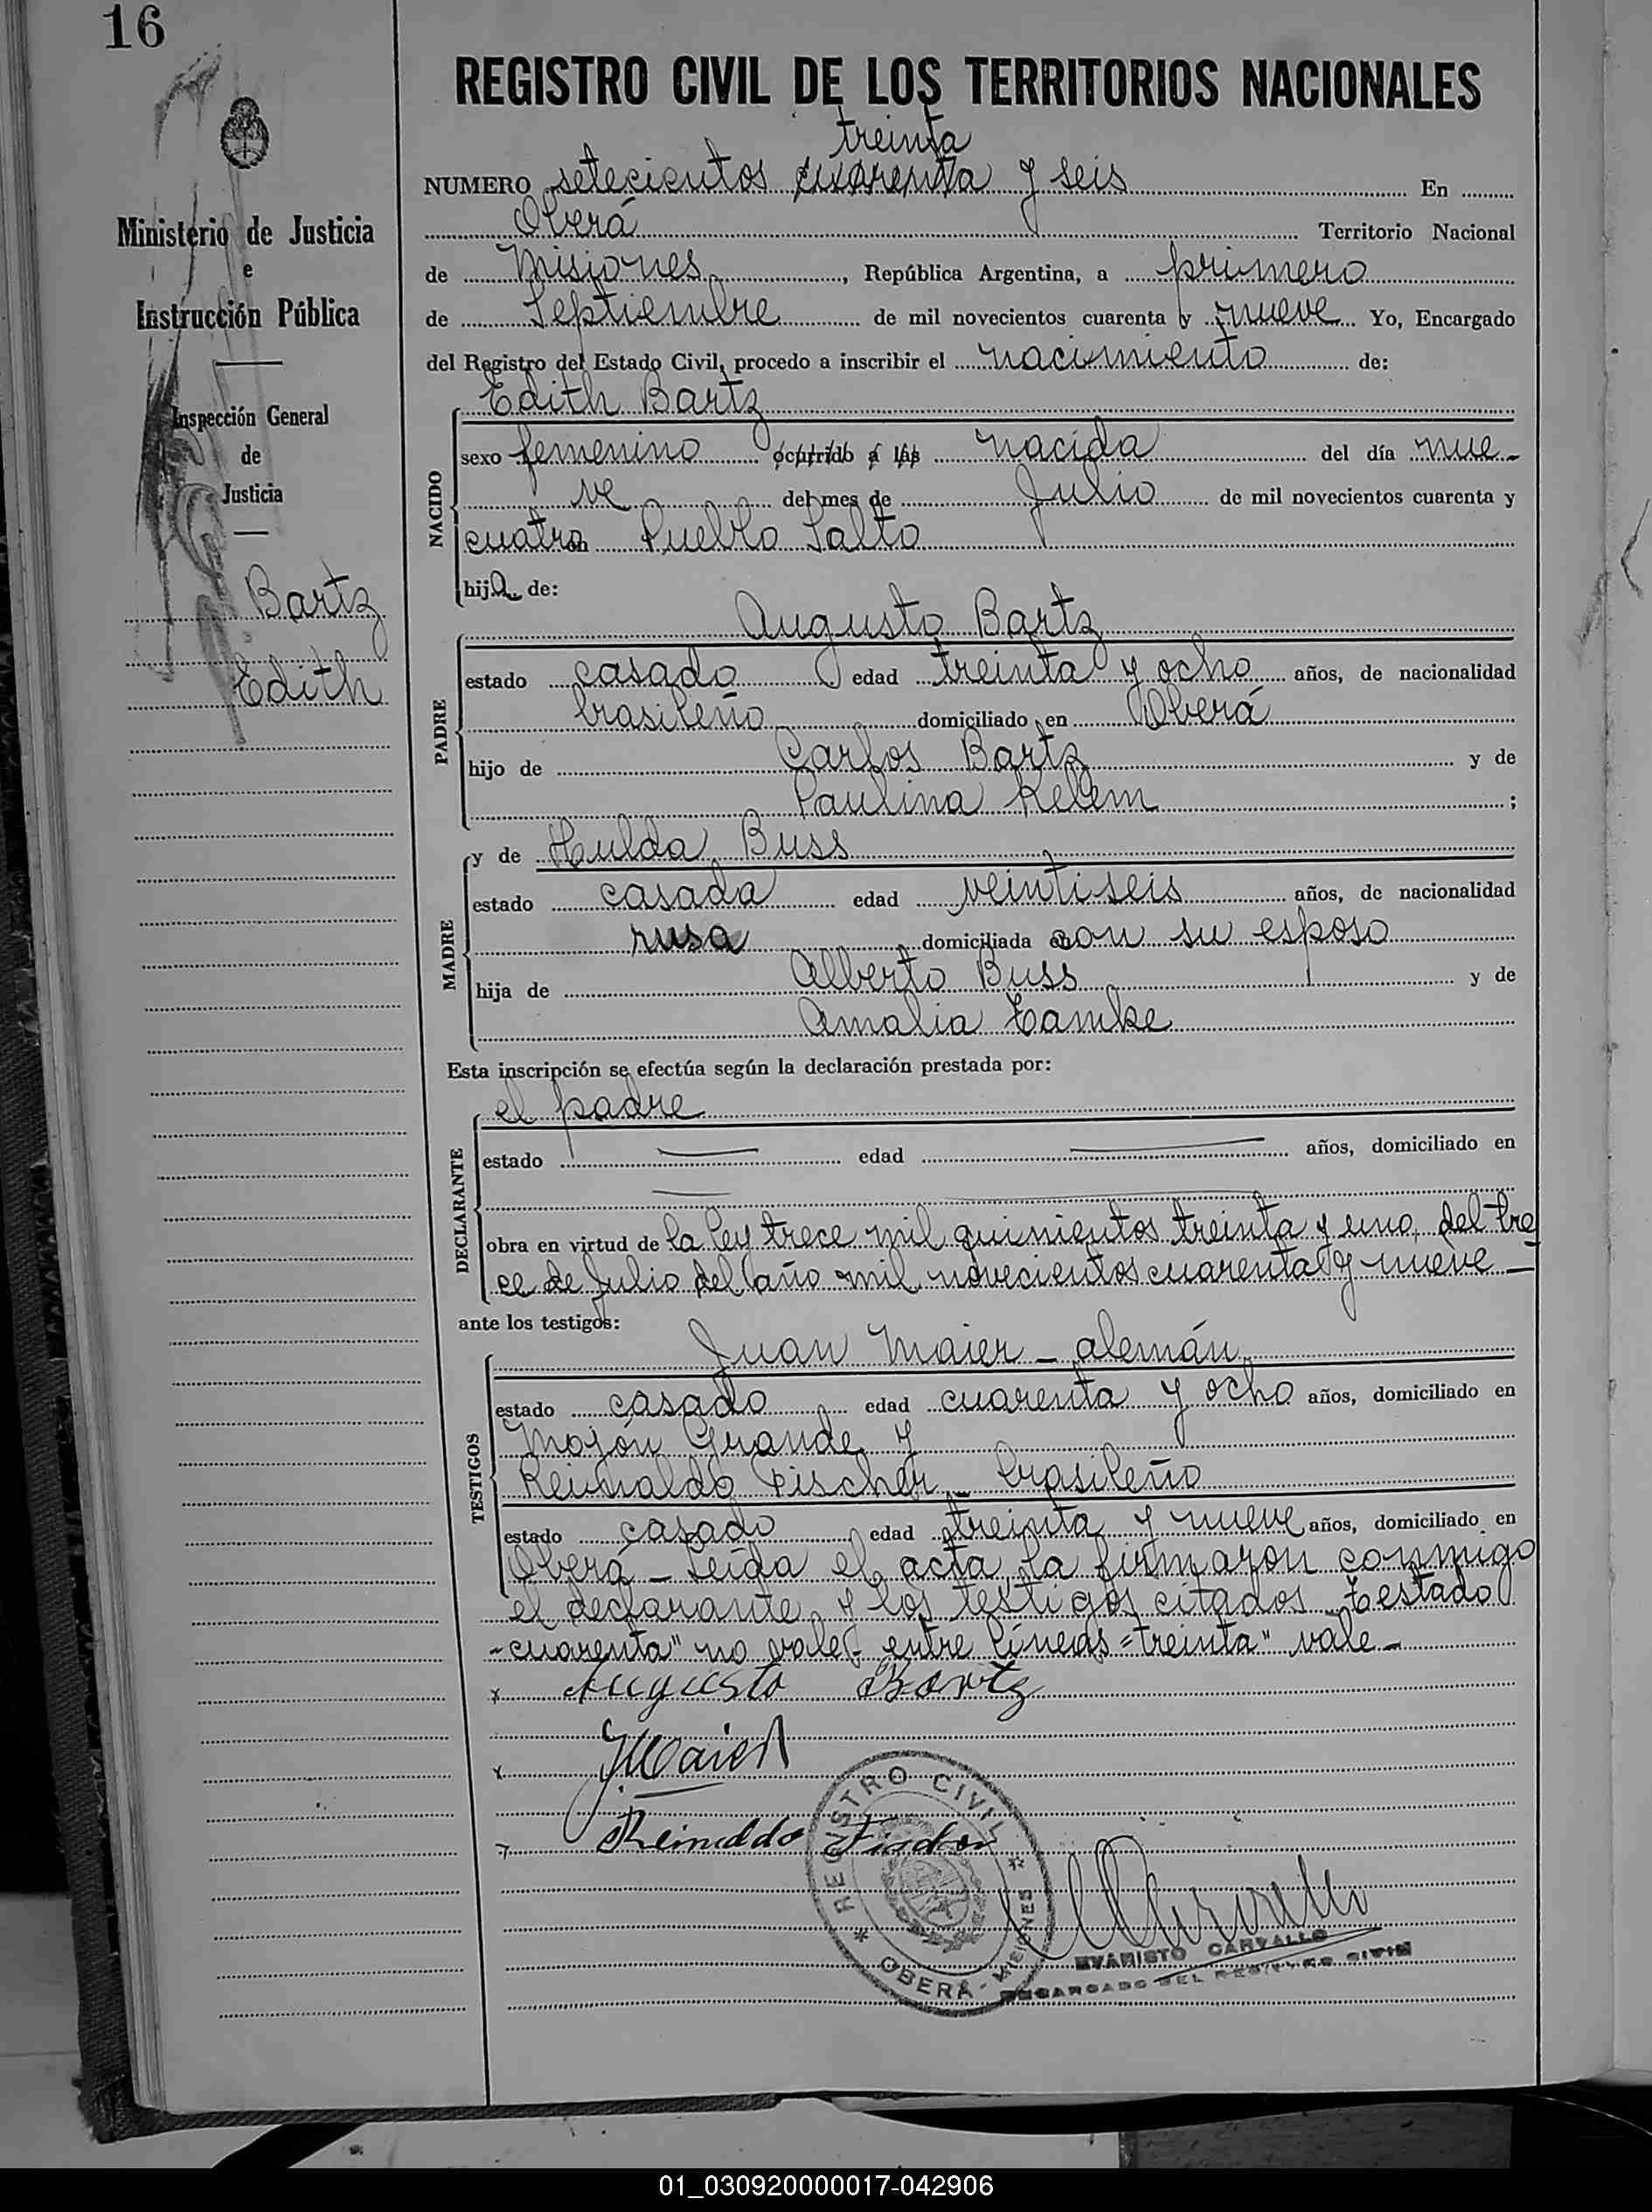 16
REGISTRO CIVIL DE LOS TERRITORIOS NACIONALES
treinta
NUMERO setecientos cuarenta y seis En
Oberá Territorio Nacional
de Misiones, República Argentina, a primero
de Septiembre de mil novecientos cuarenta y nueve Yo, Encargado
del Registro del Estado Civil, procedo a inscribir el nacimiento de:
Edith Bartz
NACIDO
sexo femenino ocurrido a las nacida del día nue-
ve del mes de Julio de mil novecientos cuarenta y
cuatro en Pueblo Salto
hija de:
PADRE
Augusto Bartz
estado casado edad treinta y ocho años, de nacionalidad
brasileño domiciliado en Oberá
hijo de Carlos Bartz y de
Paulina Kelem ;
MADRE
y de Hulda Buss
estado casada edad veintiseis años, de nacionalidad
rusa domiciliada con su esposo
hija de Alberto Buss y de
Amalia Tamke
Esta inscripción se efectúa según la declaración prestada por:
DECLARANTE
el padre
estado edad años, domiciliado en
obra en virtud de la ley trece mil quinientos treinta y uno del tre
ce de Julio del año mil novecientos cuarenta y nueve -
ante los testigos:
TESTIGOS
Juan Maier - alemán
estado casado edad cuarenta y ocho años, domiciliado en
Mojón Grande y
Reinaldo Fischer - brasileño
estado casado edad treinta y nueve años, domiciliado en
Oberá - Leída el acta la firmaron conmigo
el declarante y los testigos citados - Testado
-cuarenta" no vale - entre líneas ="treinta" vale -
x Augusto Bartz
x JMaier
Reinaldo
REGISTRO CIVIL
* OBERA - MISIONES *
EVARISTO CARVALLO
ENCARGADO DEL REGISTRO CIVIL
Ministerio de Justicia
e
Instrucción Pública
Inspección General
de
Justicia
Bartz
Edith
01_030920000017-042906